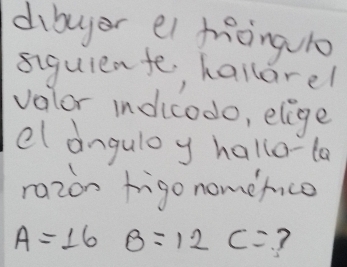 dibujar el triángulo
siguiente, hallar el
valor indicado, elige
el ángulo y halla la
razón trigonométrica
A=16 B=12 C=?